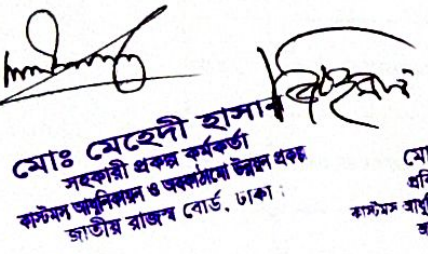 মোঃ মেহেদী হাসান
সহকারী প্রকল্প কর্মকর্তা
কাস্টমস আধুনিকায়ন ও অবকাঠামো উন্নয়ন প্রকল্প
জাতীয় রাজস্ব বোর্ড, ঢাকা।
মো
কাস্টমস